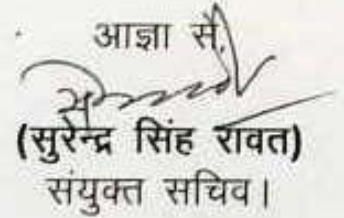 आज्ञा से,
(सुरेन्द्र सिंह रावत)
संयुक्त सचिव।